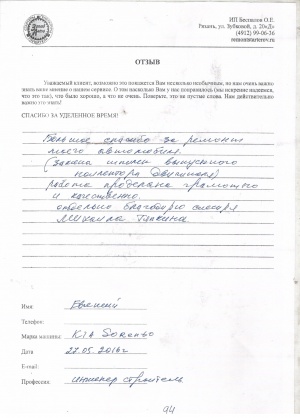 ИП Беспалов О.Е.
Рязань, ул. Зубковой, д. 20«Д»
(4912) 99-06-36
remontsterterov.ru
ОТЗЫВ
Уважаемый клиент, возможно это покажется Вам несколько необычным, но нам очень важно
знать ваше мнение о нашем сервисе. О том насколько Вам у нас понравилось (мы искренне надеемся,
что это так), что было хорошо, а что не очень. Поверьте, это не пустые слова. Нам действительно
важно это знать!
СПАСИБО ЗА УДЕЛЕННОЕ ВРЕМЯ!
Большое спасибо за ремонт
моего автомобиля.
(замена шпилек выпускного
коллектора двигателя)
работа проделана грамотно
и качественно.
отдельно благодарю слесаря
Михаила
Имя: Евгений
Телефон:
Марка машины: KIA Sorento
Дата 27.05.2016г
E-mail:
Профессия: инженер строитель
94